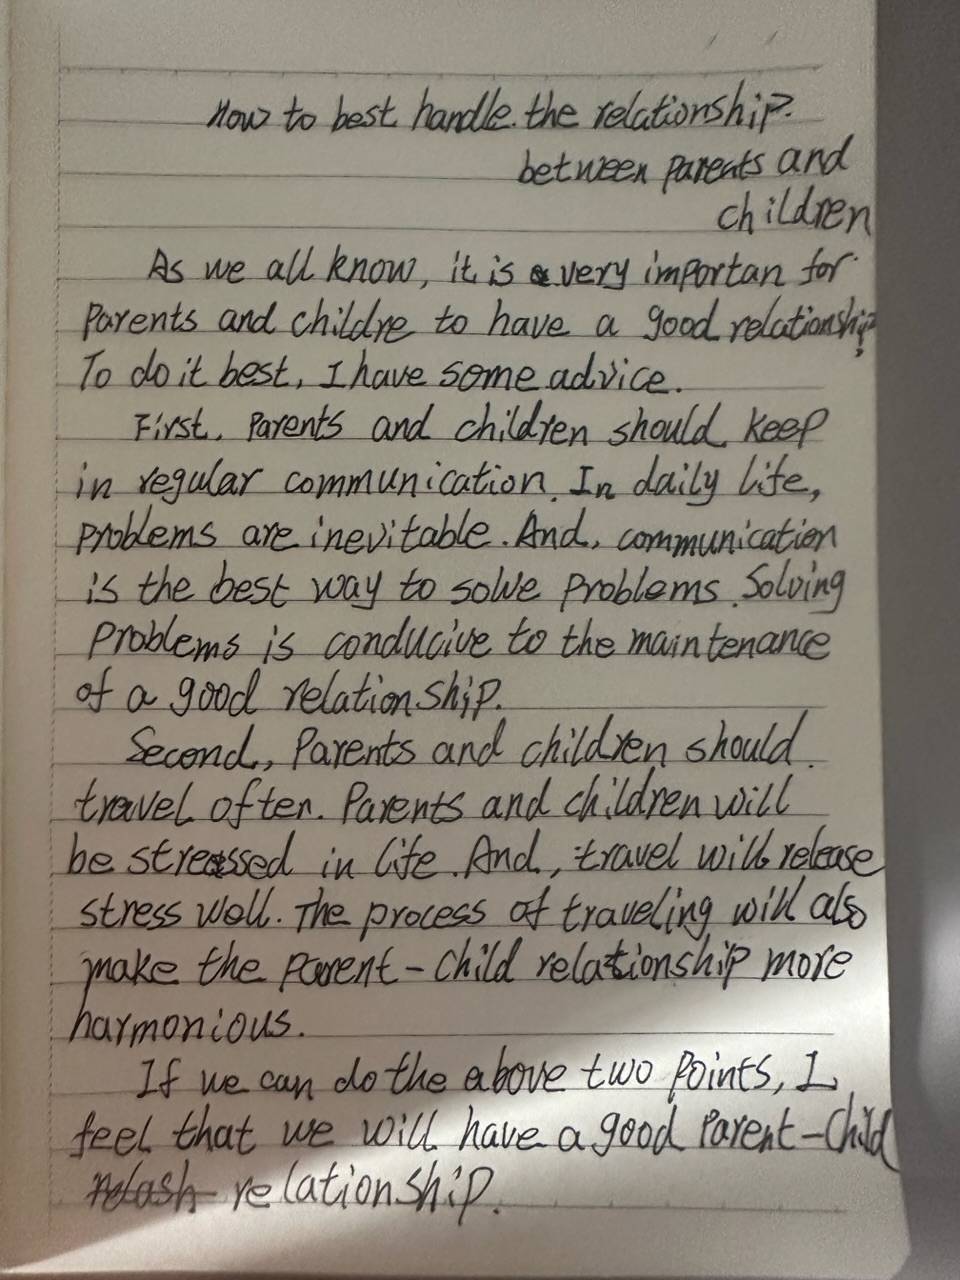 How to best handle the relationship.
between parents and
children
As we all know, it is a very importan for
parents and childre to have a good relationship.
To do it best, I have some advice.
First, parents and children should keep
in regular communication. In daily life,
problems are inevitable. And, communication
is the best way to solve problems. Solving
problems is conducive to the maintenance
of a good relationship.
Second, parents and children should
travel often. Parents and children will
be stressed in life. And, travel will release
stress well. The process of traveling will also
make the parent-child relationship more
harmonious.
If we can do the above two points, I
feel that we will have a good parent-child
relationship.